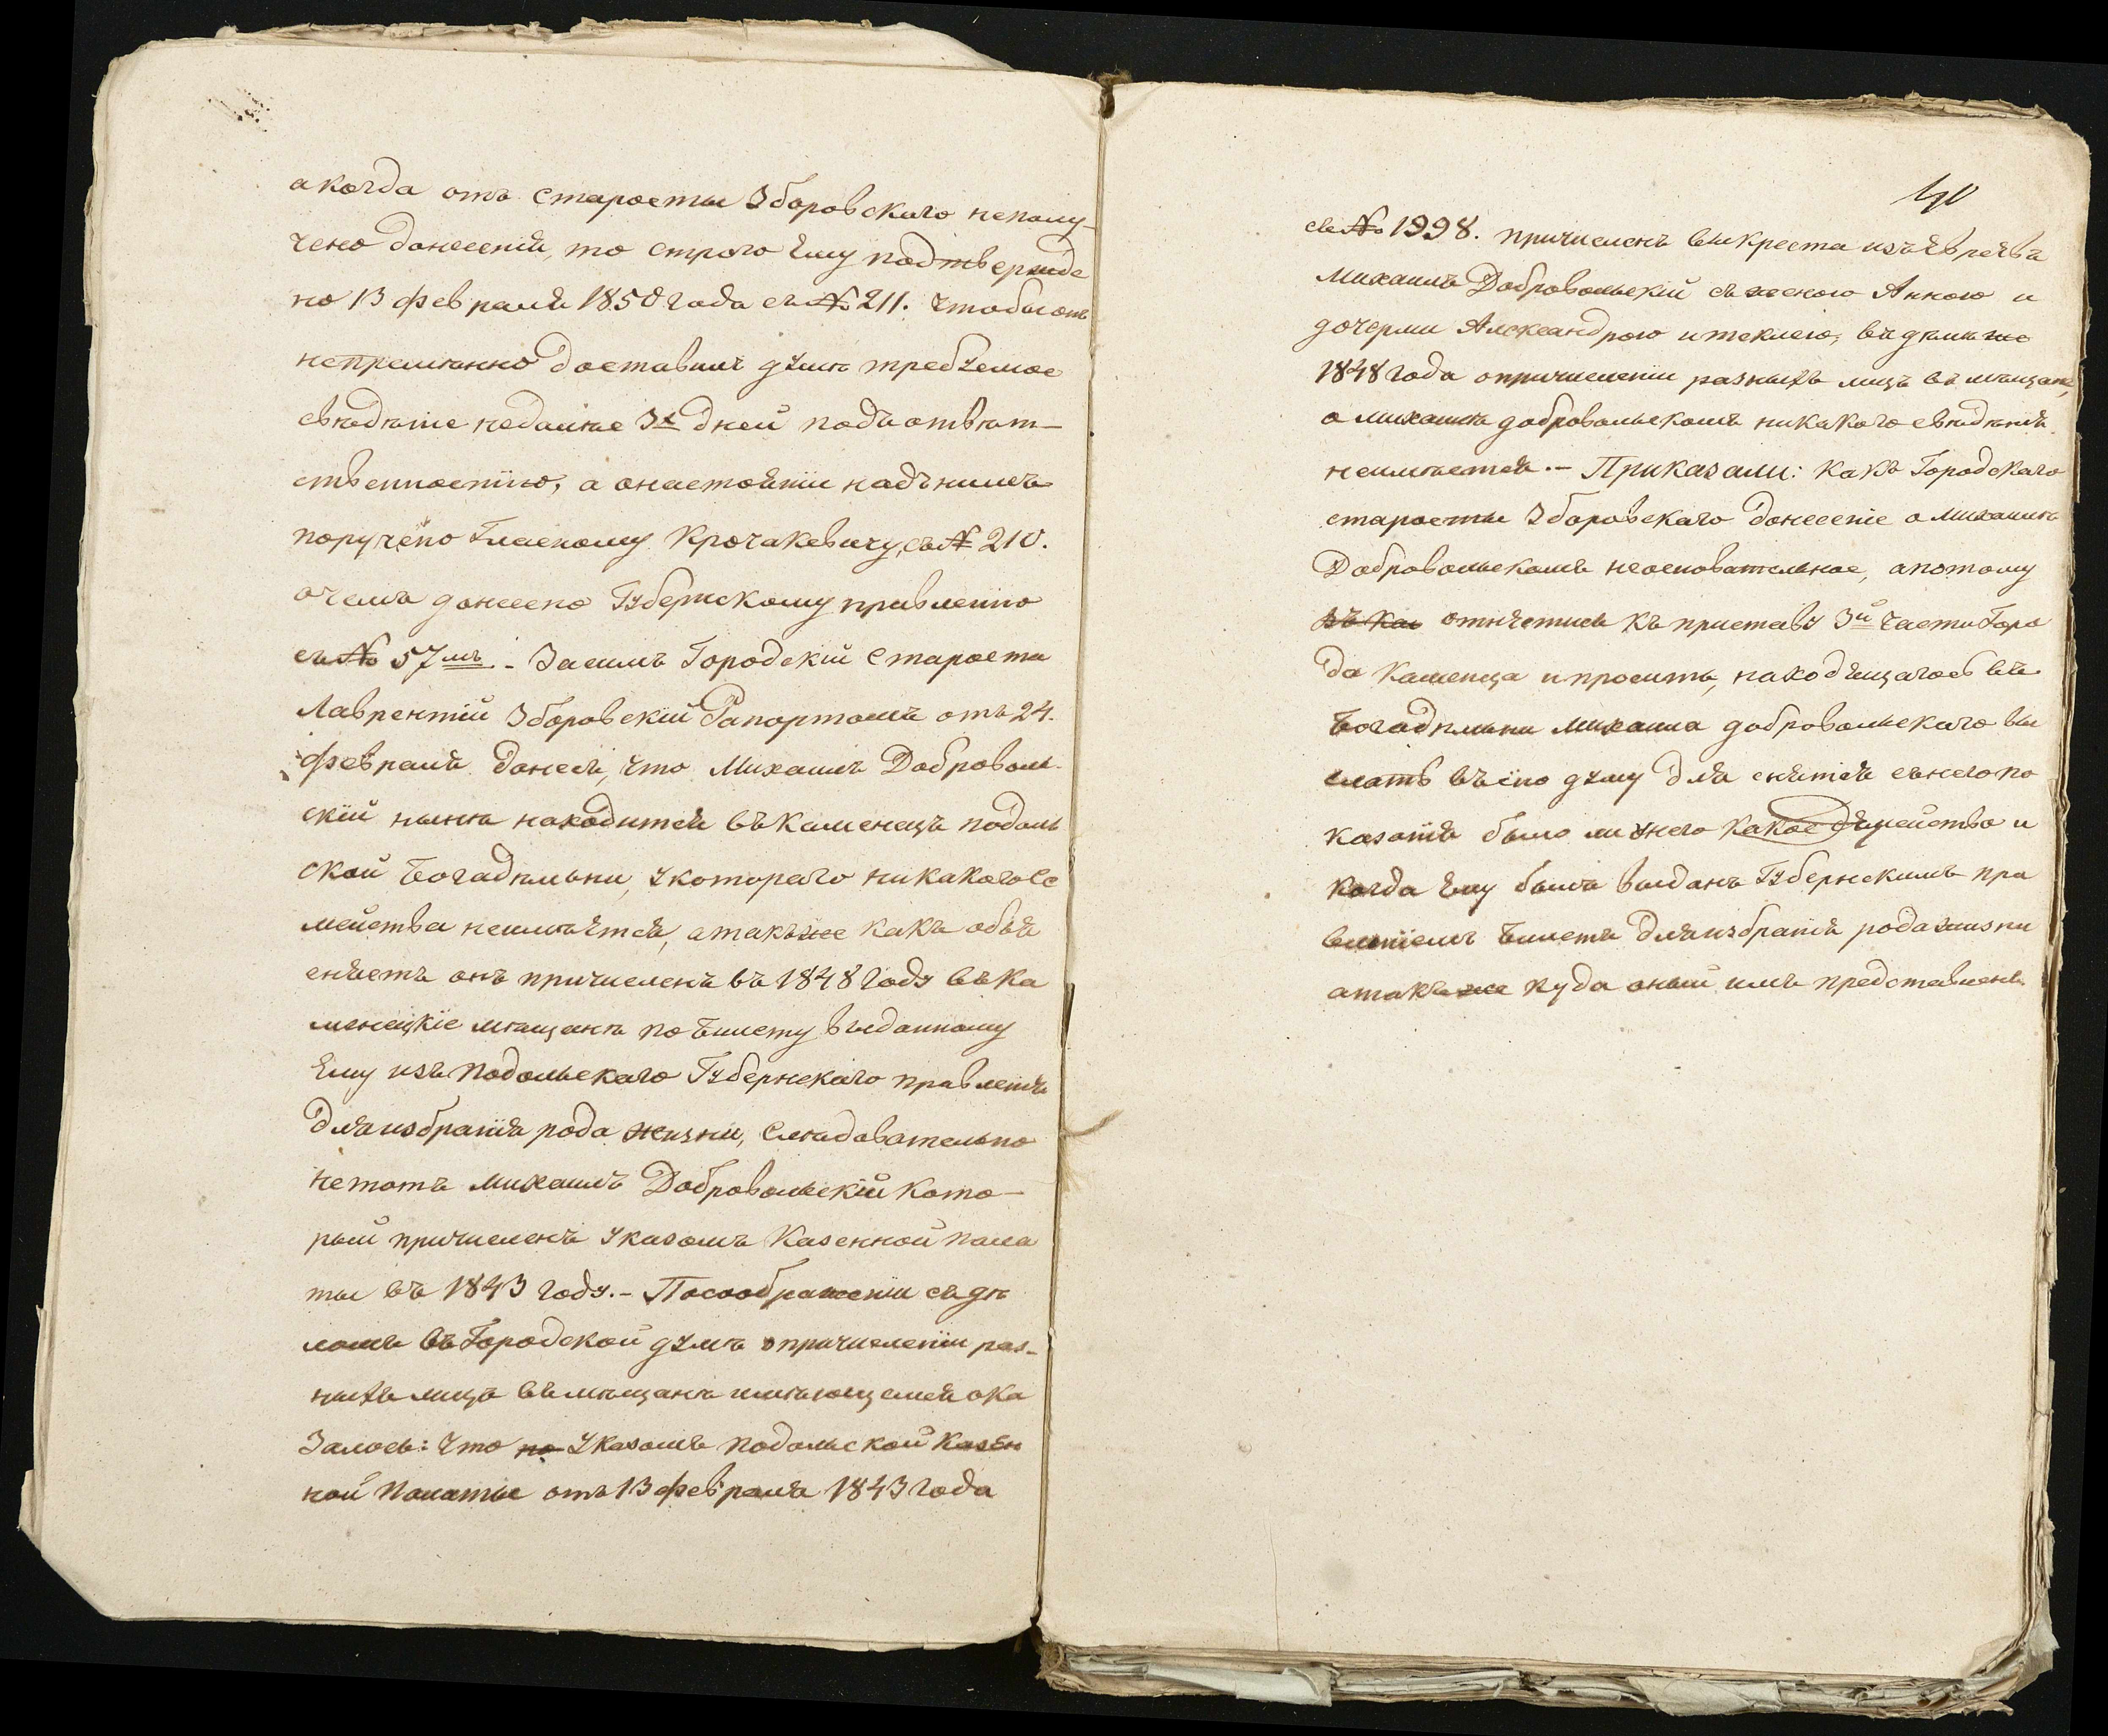 а когда отъ Старосты Зборовскаго неполу-
чено донесенія, то строго Ему подтвержде
но 13 февраля 1850 года съ № 211. чтобы онъ
непременно доставилъ думѣ требуемое
свѣдѣніе недалѣе 3х дней подъ отвѣт-
ственностію, а онастояніи надънимъ
поручено Гласному Крочакевичу, съ № 210.
очемъ донесено Губернскому правленію
съ № 57мъ. - Засимъ Городскій Староста
Лаврентій Зборовскій Рапортомъ отъ 24.
февраля донесъ, что Михаилъ Доброволь-
скій нынѣ находится въ Каменецъ подоль
ской Богадѣльни, укотораго никакого се
мейства неимѣется, атакъже какъ объя
сняетъ онъ причисленъ въ 1848 году въ Ка
менецкіе мѣщанѣ по Билету выданному
Ему изъ Подольскаго Губернскаго правленія
Для избранія рода жизни, Слѣдовательно
нетотъ Михаилъ Добровольскій Кото-
рый причисленъ Указомъ Казенной пала
ты въ 1843 году. - Посоображеніи съ дѣ
ломъ въ Городской думѣ опричисленіи раз-
ныхъ лицъ въ мѣщанѣ имѣющемся ока
залось: что по Указомъ Подольской Казен
ной Палаты отъ 13 февраля 1843 года
40
съ № 1998. причисленъ выкреста изъ Евреевъ
Михаилъ Добровольскій съ женою Анною и
дочерми Александрою итеклею, въ дѣлѣ же
1848 года опричисленіи разныхъ лицъ въ мѣщанѣ,
о Михаилѣ добровольскомъ никакого свѣдѣнія
неимѣется. - Приказали: какъ Городскаго
старосты Зборовскаго донесеніе о Михаилѣ
Добровольскомъ неосновательное, апотому
въ Кан отнестись къ приставу 3й части Горо
да Каменца ипросить, находящагось въ
Богадѣльни Михаила добровольскаго вы
слать въ сію думу для снятія съ него по
казанія было ли унего какое семейство и
когда Ему былъ выданъ Губернскимъ пра
вленіемъ Билетъ для избранія рода жизни
атакъже куда оный имъ представленъ